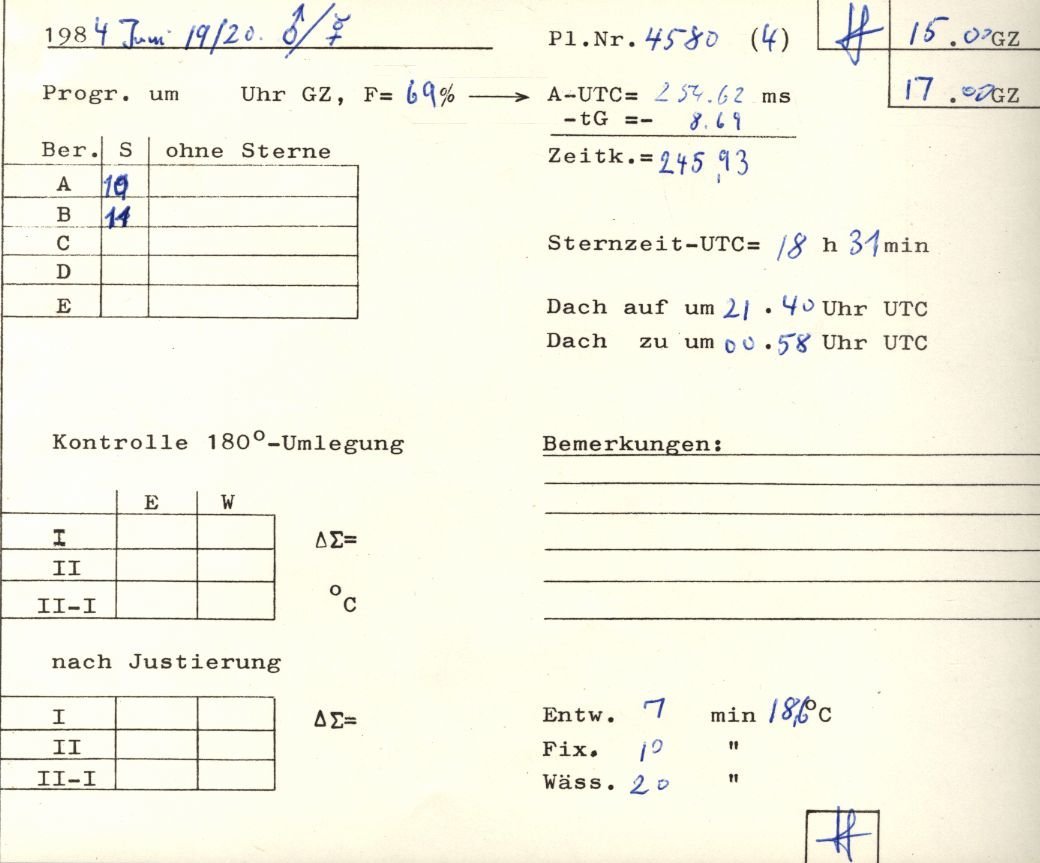 1984 Juni 19/20. ♂/☿ Pl.Nr. 4580 (4) 15.00 GZ
Progr. um Uhr GZ, F= 69% → A-UTC= 254.62 ms 17.00 GZ
-tG =- 8.69
Ber. S ohne Sterne Zeitk.= 245,93
A 10
B 11
C Sternzeit-UTC= 18 h 31 min
D
E Dach auf um 21.40 Uhr UTC
Dach zu um 00.58 Uhr UTC
Kontrolle 180°-Umlegung Bemerkungen:
E W
I ΔΣ=
II
II-I °C
nach Justierung
I ΔΣ= Entw. 7 min 18,6°C
II Fix. 10 "
II-I Wäss. 20 "